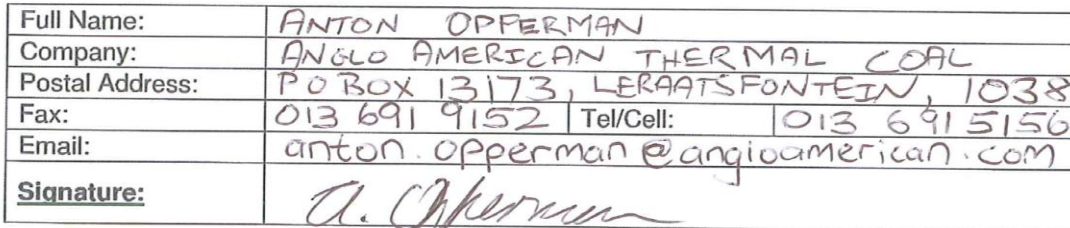 Full Name: ANTON OPPERMAN
Company: ANGLO AMERICAN THERMAL COAL
Postal Address: PO BOX 13173, LERAATSFONTEIN, 1038
Fax: 013 691 9152 Tel/Cell: 013 691 5156
Email: anton.opperman@angloamerican.com
Signature: A. Opperman